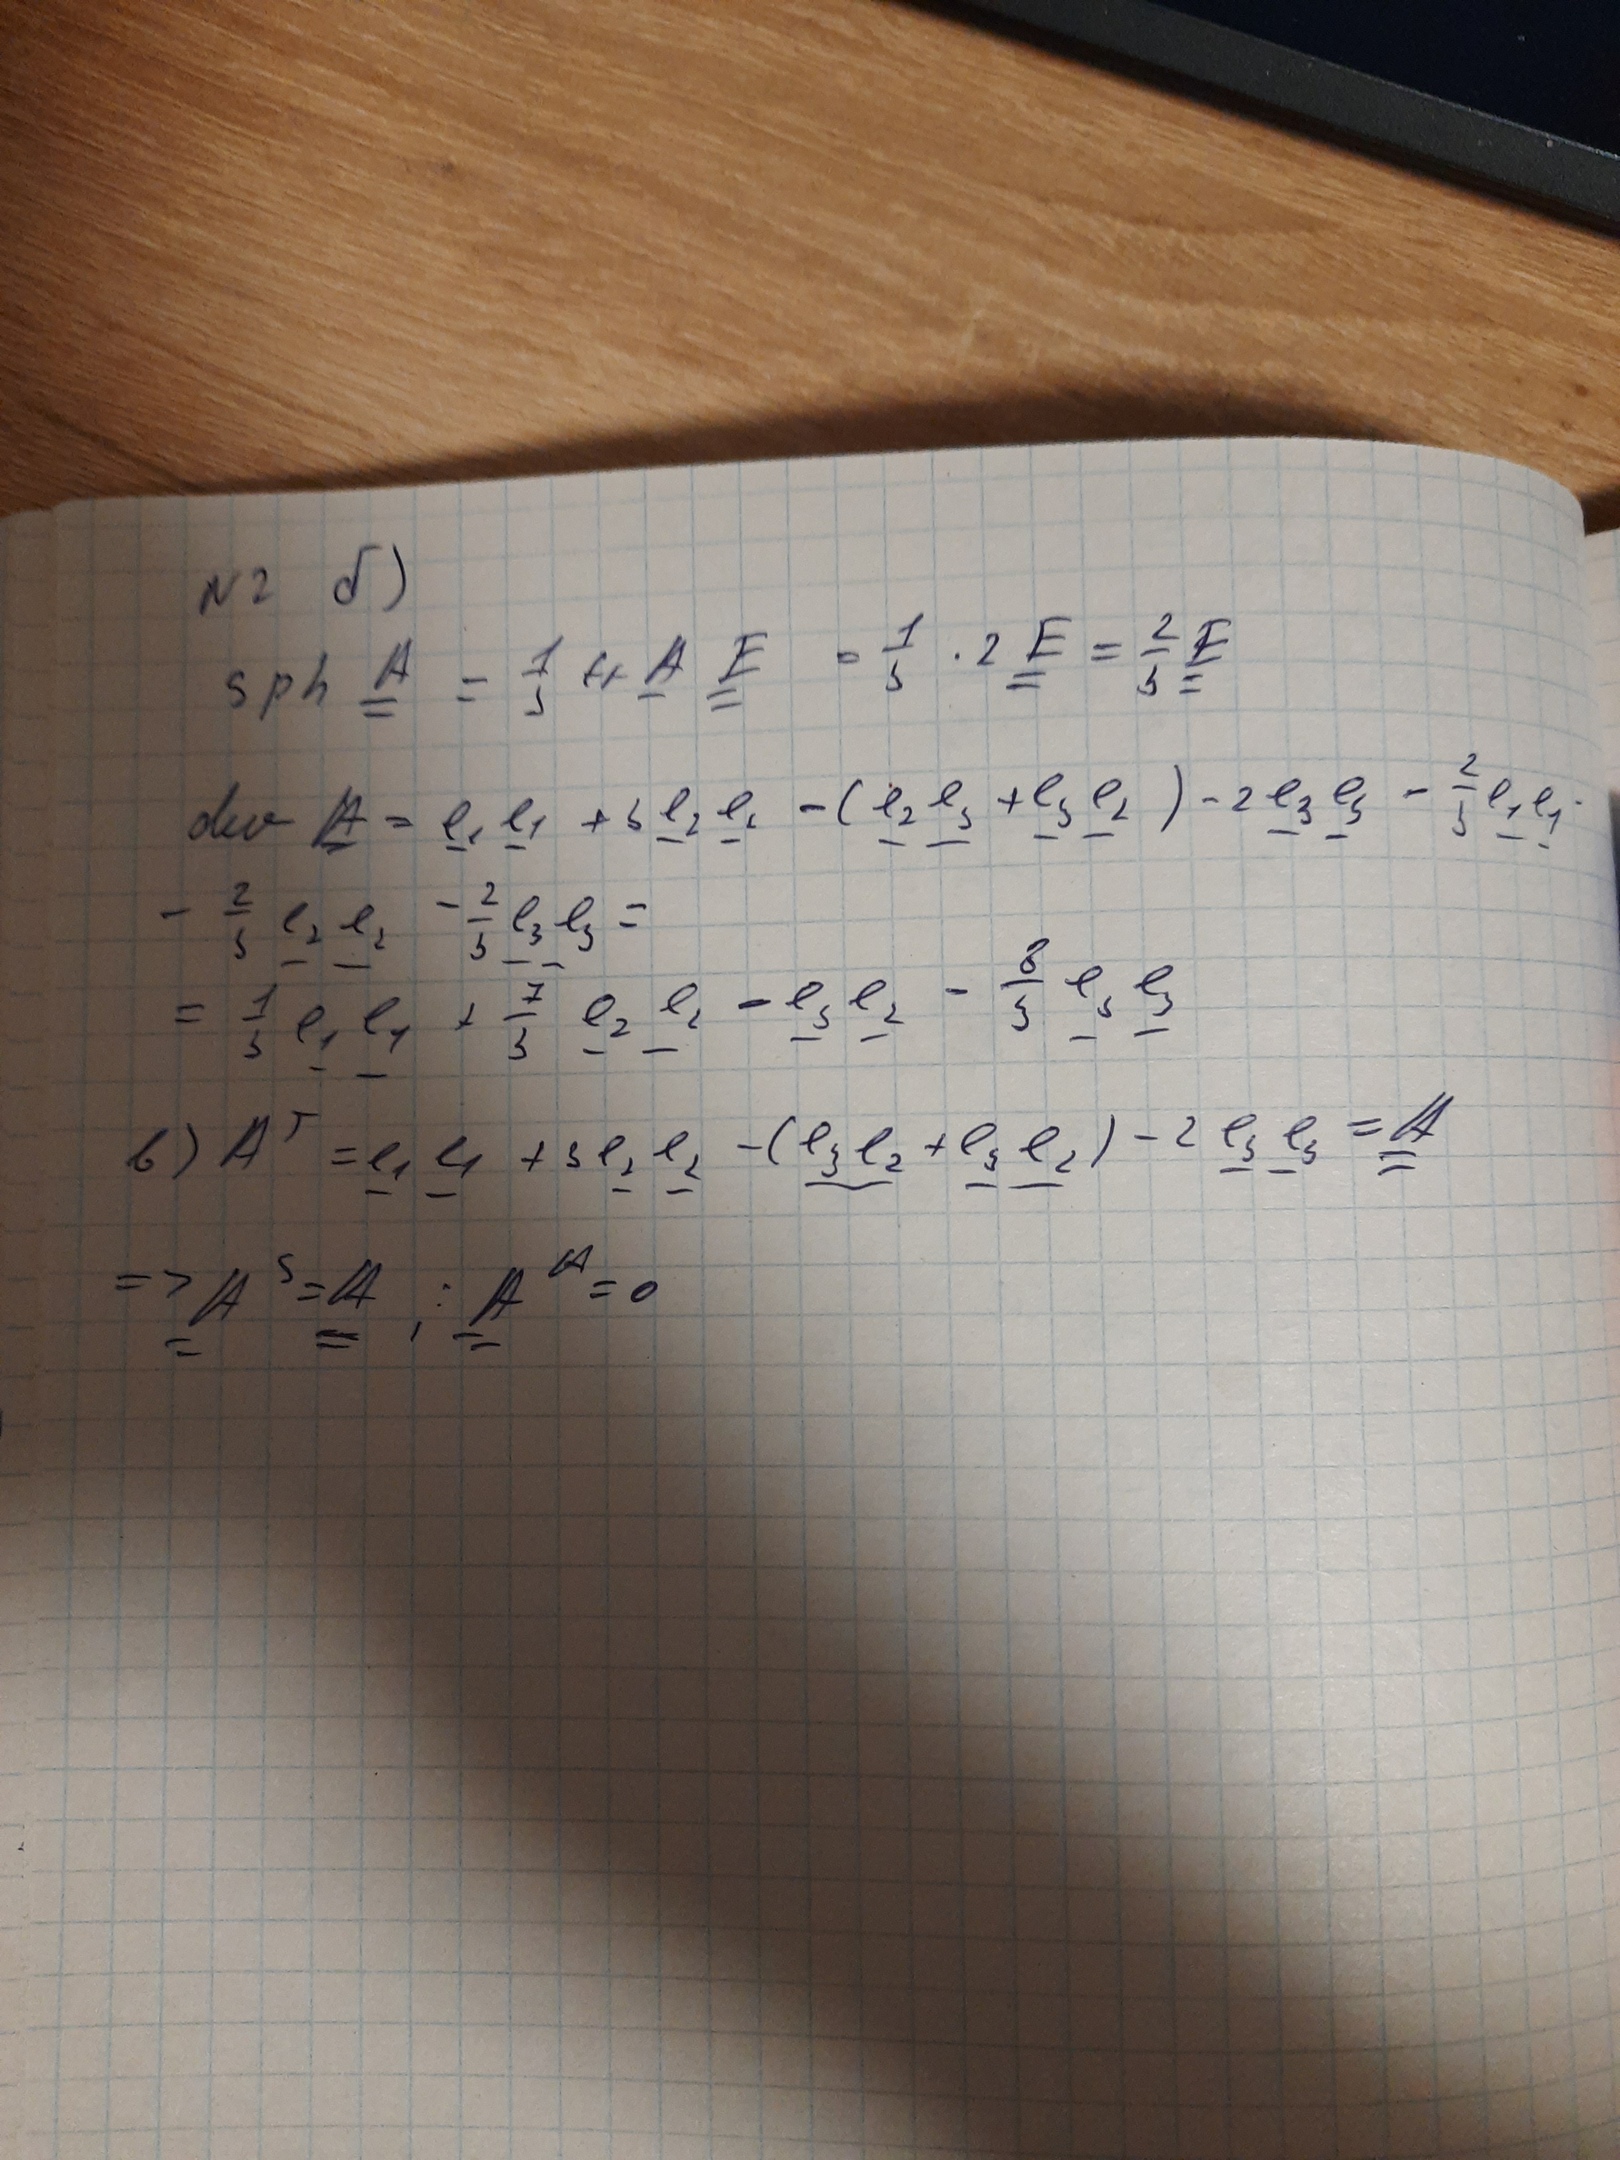 N2 б)
sph A = 1/3 tr A E = 1/3 · 2 E = 2/3 E
dev A = e₁ e₁ + 3 e₂ e₂ - (e₂ e₃ + e₃ e₂) - 2 e₃ e₃ - 2/3 e₁ e₁ -
- 2/3 e₂ e₂ - 2/3 e₃ e₃ =
= 1/3 e₁ e₁ + 7/3 e₂ e₂ - e₃ e₂ - 8/3 e₃ e₃
в) Aᵀ = e₁ e₁ + 3 e₂ e₂ - (e₃ e₂ + e₃ e₂) - 2 e₃ e₃ = A
=> Aˢ = A ; Aᴬ = 0